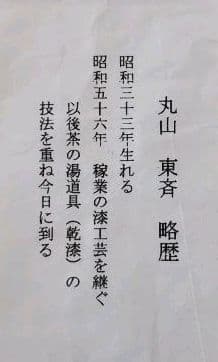 丸山 東斉 略歴
昭和三十三年生れる
昭和五十六年 稼業の漆工芸を継ぐ
以後茶の湯道具（乾漆）の
技法を重ね今日に到る